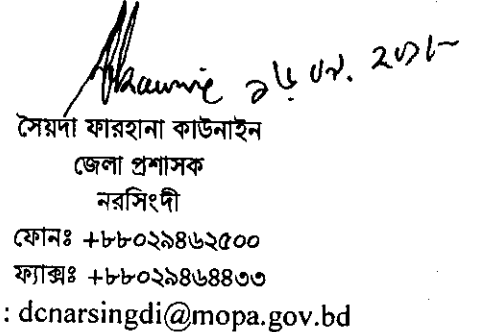 সৈয়দা ফারহানা কাউনাইন
জেলা প্রশাসক
নরসিংদী
ফোনঃ +৮৮০২৯৪৬২৫০০
ফ্যাক্সঃ +৮৮০২৯৪৬৪৪৩৩
: dcnarsingdi@mopa.gov.bd